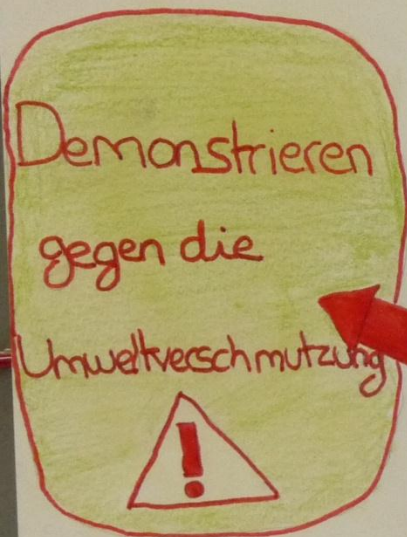 Demonstrieren
gegen die
Umweltverschmutzung
!